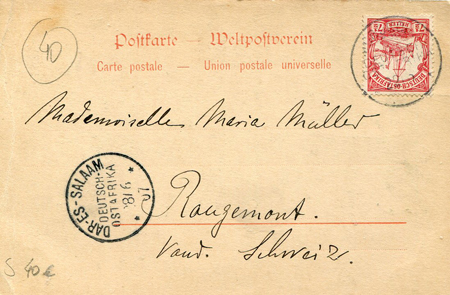 40
Postkarte — Weltpostverein
Carte postale — Union postale universelle
Mademoiselle Maria Müller
DAR-ES-SALAAM
DEUTSCH-
OSTAFRIKA
Rougemont.
Vaud. Schweiz.
DEUTSCH-OSTAFRIKA
7½ 7½
S 40€